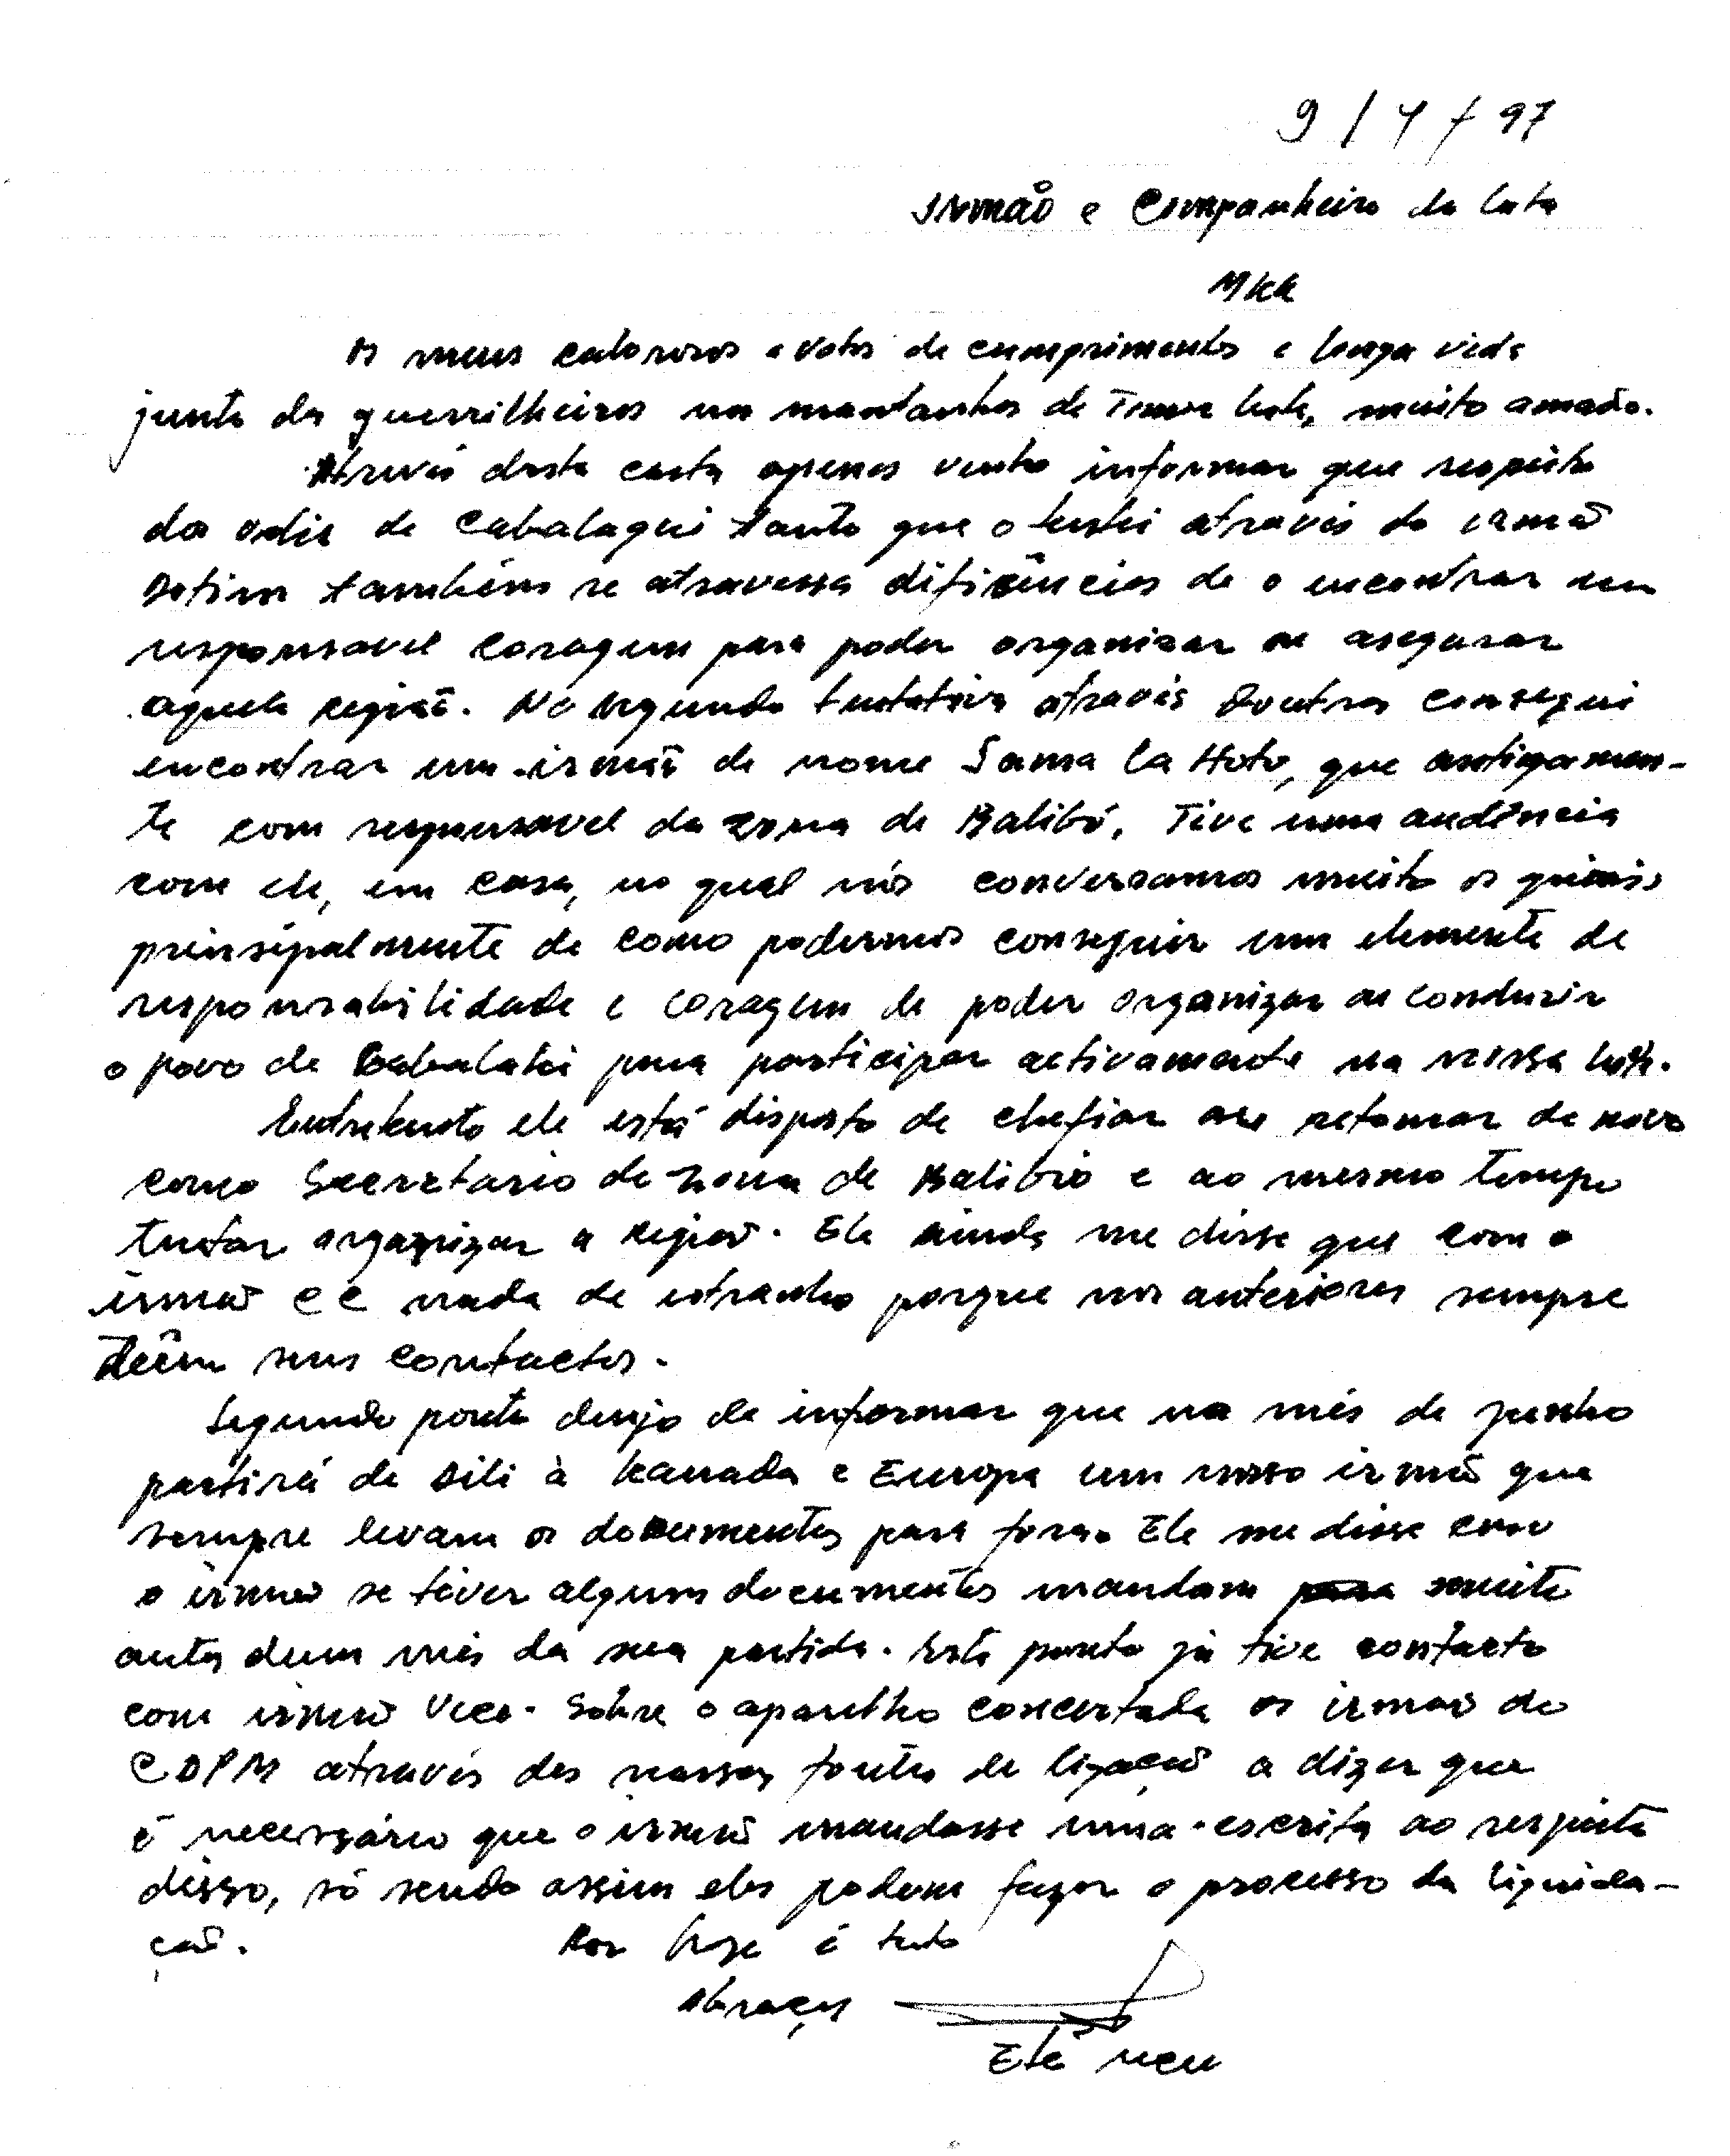 9 / 4 / 97
Irmão e Companheiro da luta
Mkk
Os meus calorosos e votos de cumprimentos e longa vida
junto dos guerrilheiros nas montanhas de Timor Leste, muito amado.
Através desta carta apenas venho informar que respeito
da de Cabalaqui tanto que o tentei através do irmão
também se atravessa difiências de o encontrar um
responsavel coragem para poder organizar ou asegurar
aquela região. Na segunda tentativa através doutros consegui
encontrar um irmão de nome Sama La Hoto, que antigamen-
te com responsavel da zona de Balibó, Tive uma audência
com ele, em casa, no qual nós conversamos muito os
prinsipalmente de como podermos conseguir um elemento de
responsabilidade e coragem de poder organizar ou conduzir
o povo de para participar activamente na nossa luta.
Entretanto ele está disposto de chefiar ou retomar de novo
como Secretario de zona de Balibó e ao mesmo tempo
tentar organizar a região. Ele ainda me disse que com o
irmão CC nada de estranho porque nos anteriores sempre
têem seus contactos.
Segundo ponto desejo de informar que na mês de junho
partirá de Dili à Kanada e Europa um nosso irmão que
sempre levam os documentos para fora. Ele me disse caso
o irmão se tiver alguns documentos mandam muito
antes dum mês da sua partida. Este ponto já tive contacto
com irmão Veco. Sobre o aparelho concertada os irmão do
CDPM através dos nossos fontes de ligação a dizer que
é necessário que o irmão mandasse uma escrita ao respeito
disso, só sendo assim eles podem fazer o processo da liquida-
ção. Por hoje é tudo
Abraços
Elê meu